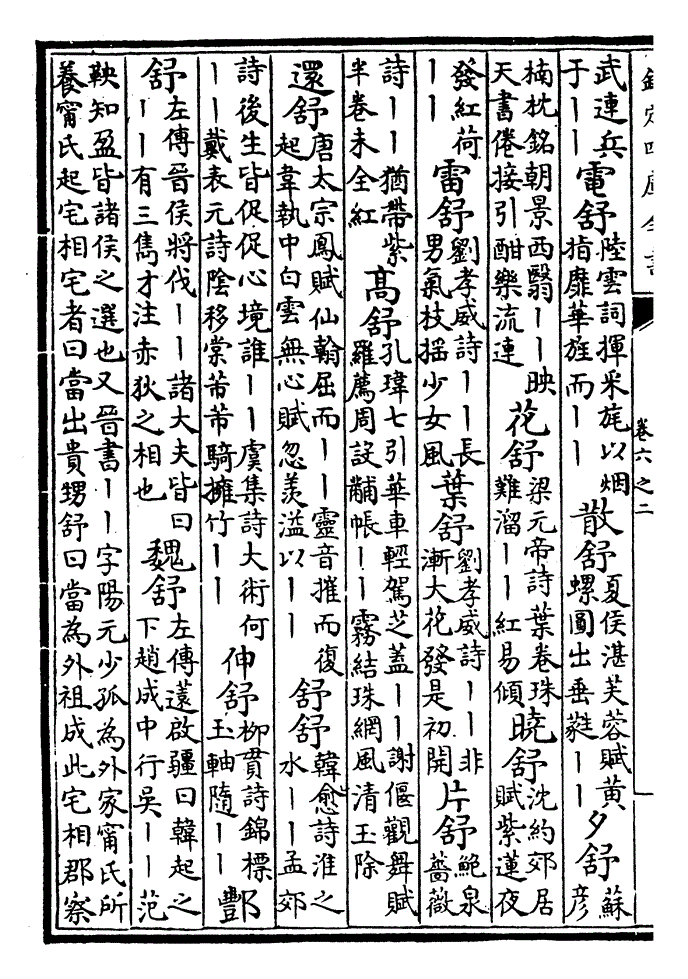 欽定四庫全書 卷六之二
武連兵于丨丨 電舒 陸雲詞揮采旄以烟指靡華旌而丨丨 散舒 夏侯湛芙蓉賦黃螺圓出垂蕤丨丨 夕舒 蘇彥
楠枕銘朝景西翳丨丨映天書倦接引酣樂流連 花舒 梁元帝詩葉卷珠難溜丨丨紅易傾 曉舒 沈約郊居賦紫蓮夜
發紅荷丨丨 雷舒 劉孝威詩丨丨長男氣枝搖少女風 葉舒 劉孝威詩丨丨非漸大花發是初開 片舒 鮑泉薔薇
詩丨丨猶帶紫半卷未全紅 高舒 孔瑋七引華車輕駕芝蓋丨丨謝偃觀舞賦羅薦周設黼帳丨丨霧結珠網風清玉除
還舒 唐太宗鳳賦仙翰屈而丨丨靈音摧而復起韋執中白雲無心賦忽羨溢以丨丨 舒舒 韓愈詩淮之水丨丨孟郊
詩後生皆促促心境誰丨丨虞集詩大術何丨丨戴表元詩陰移棠芾芾騎擁竹丨丨 伸舒 柳貫詩錦標玉軸隨丨丨 酆
舒 左傳晉侯將伐丨丨諸大夫皆曰丨丨有三雋才注赤狄之相也 魏舒 左傳薳啟疆曰韓起之下趙成中行吳丨丨范
鞅知盈皆諸侯之選也又晉書丨丨字陽元少孤為外家甯氏所養甯氏起宅相宅者曰當出貴甥舒曰當為外祖成此宅相郡察